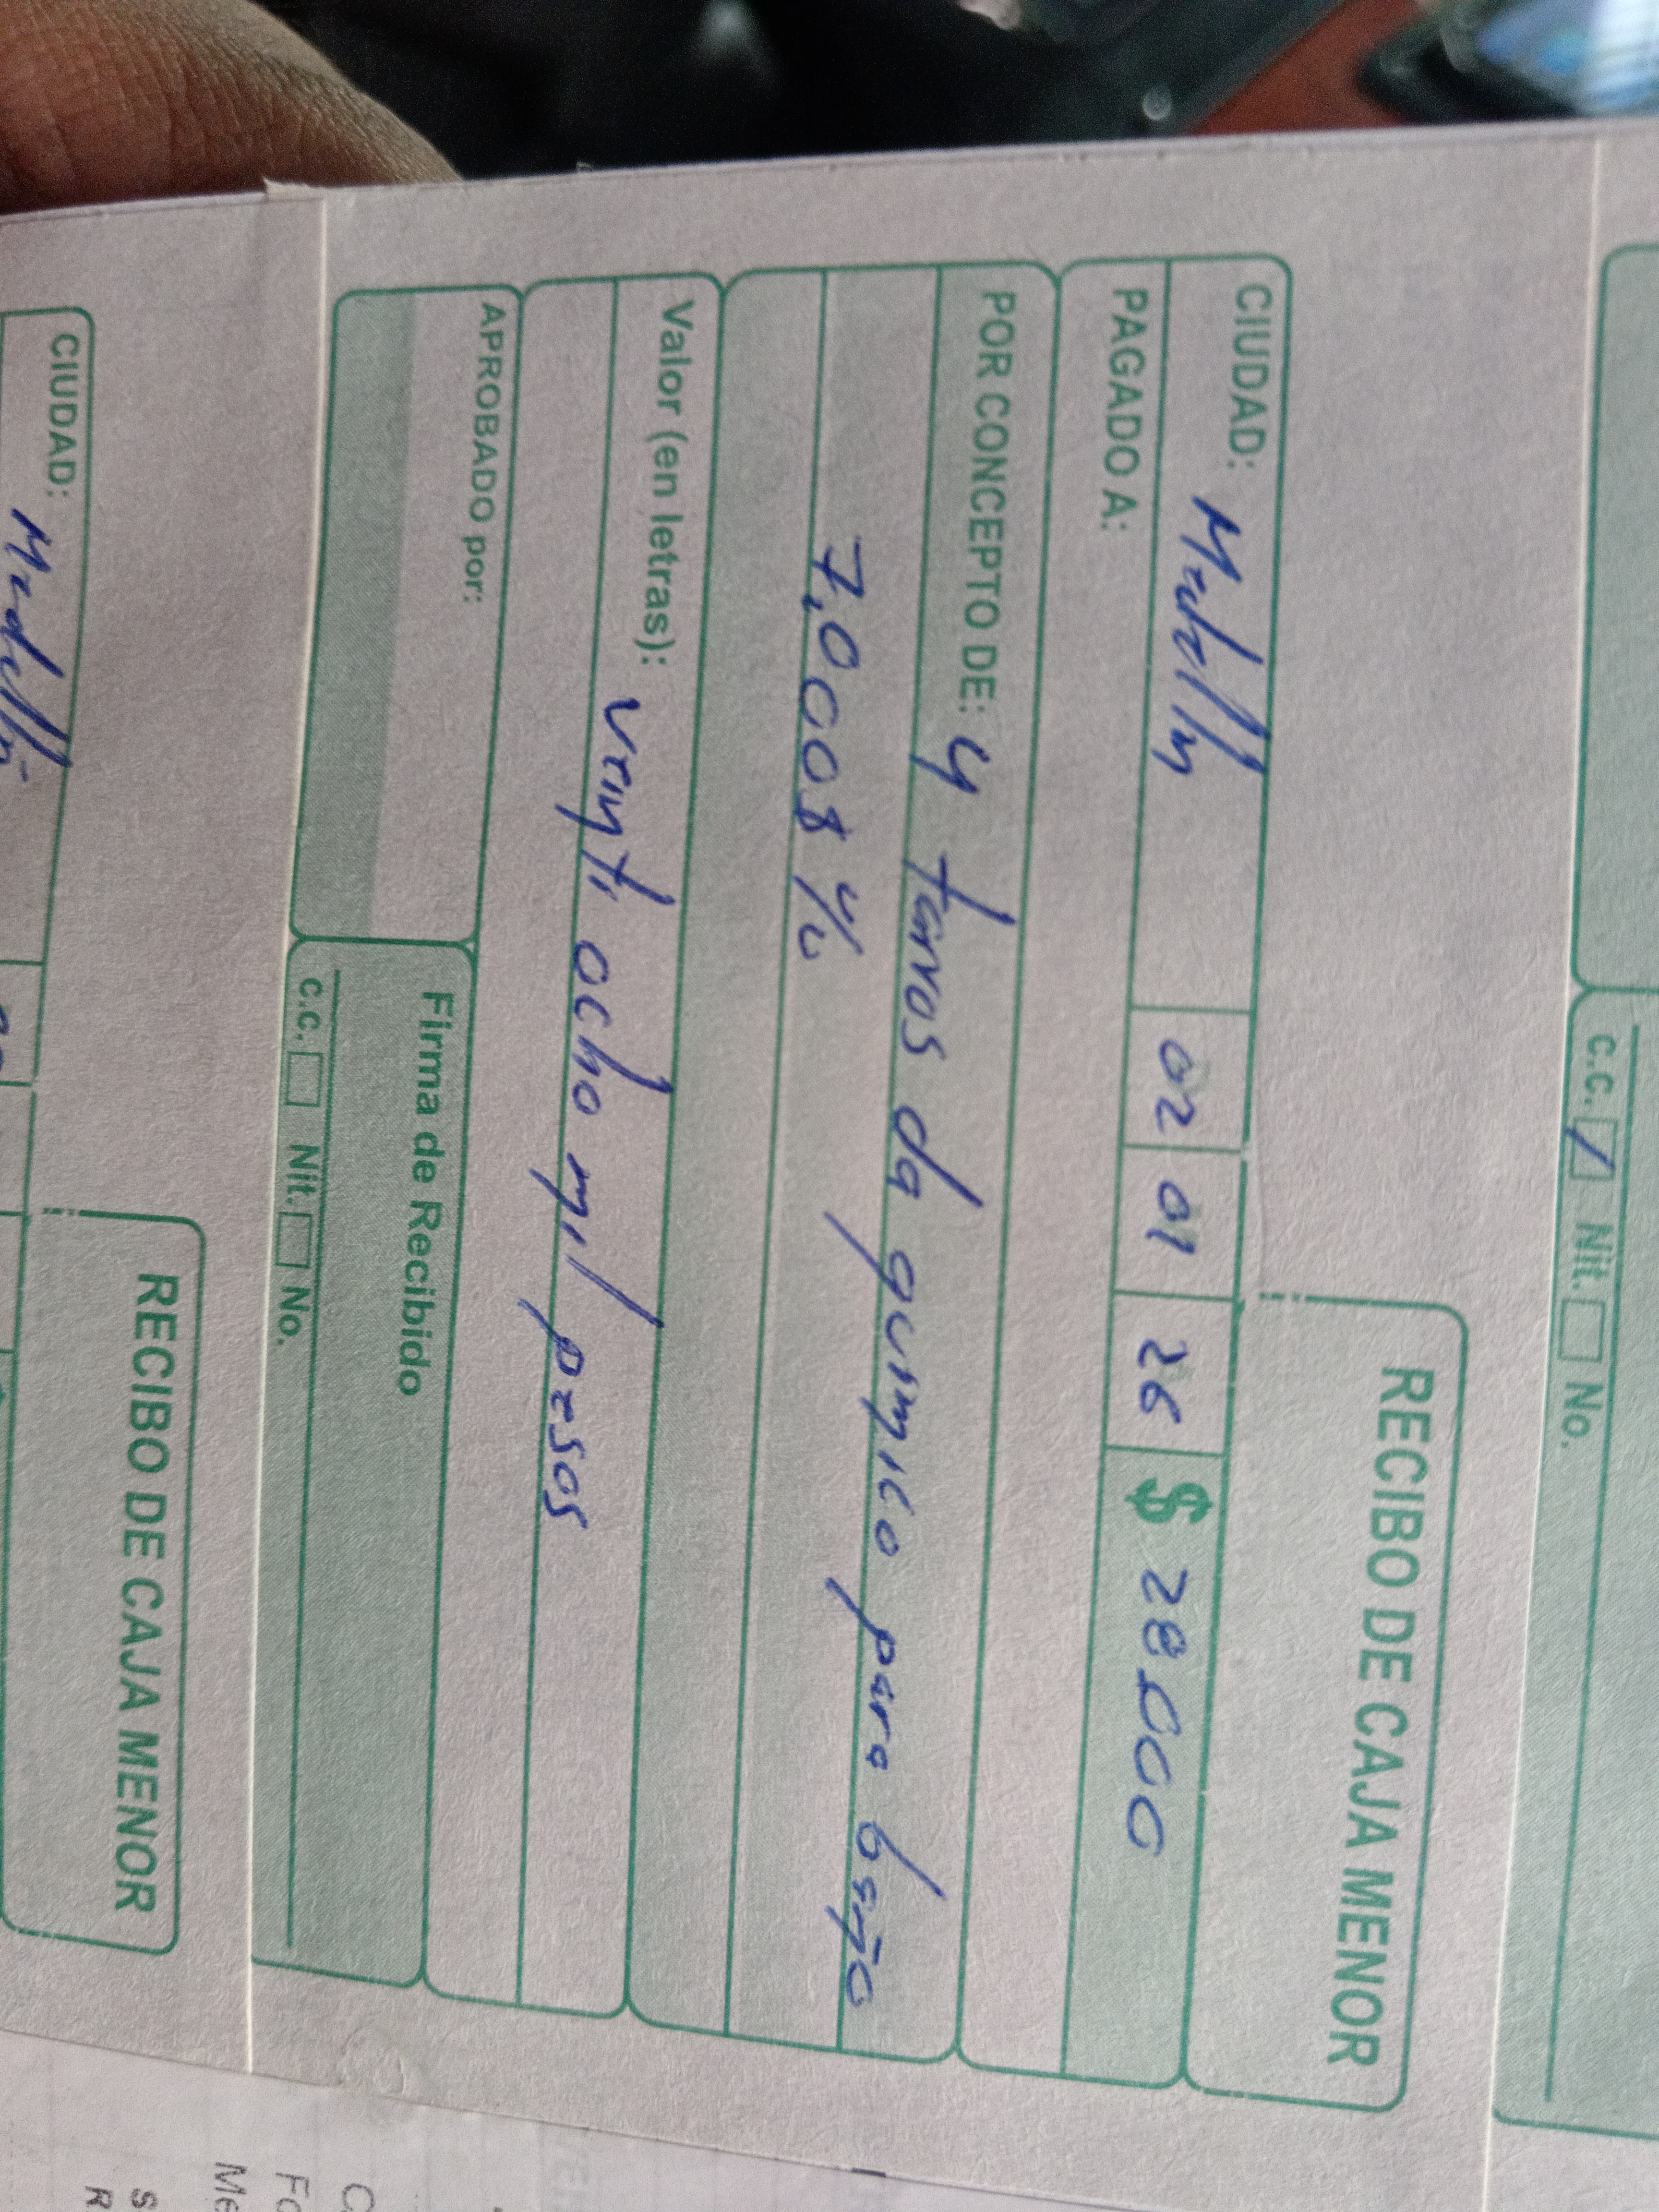 c.c. Nit. No.
RECIBO DE CAJA MENOR
CIUDAD: Medellín 02 01 26 $ 28.000
PAGADO A:
POR CONCEPTO DE: 4 tarros de quimico para baño
7.000$ c/u
Valor (en letras): veinti ocho mil pesos
APROBADO por:
Firma de Recibido
c.c. Nit. No.
RECIBO DE CAJA MENOR
CIUDAD: Medellín